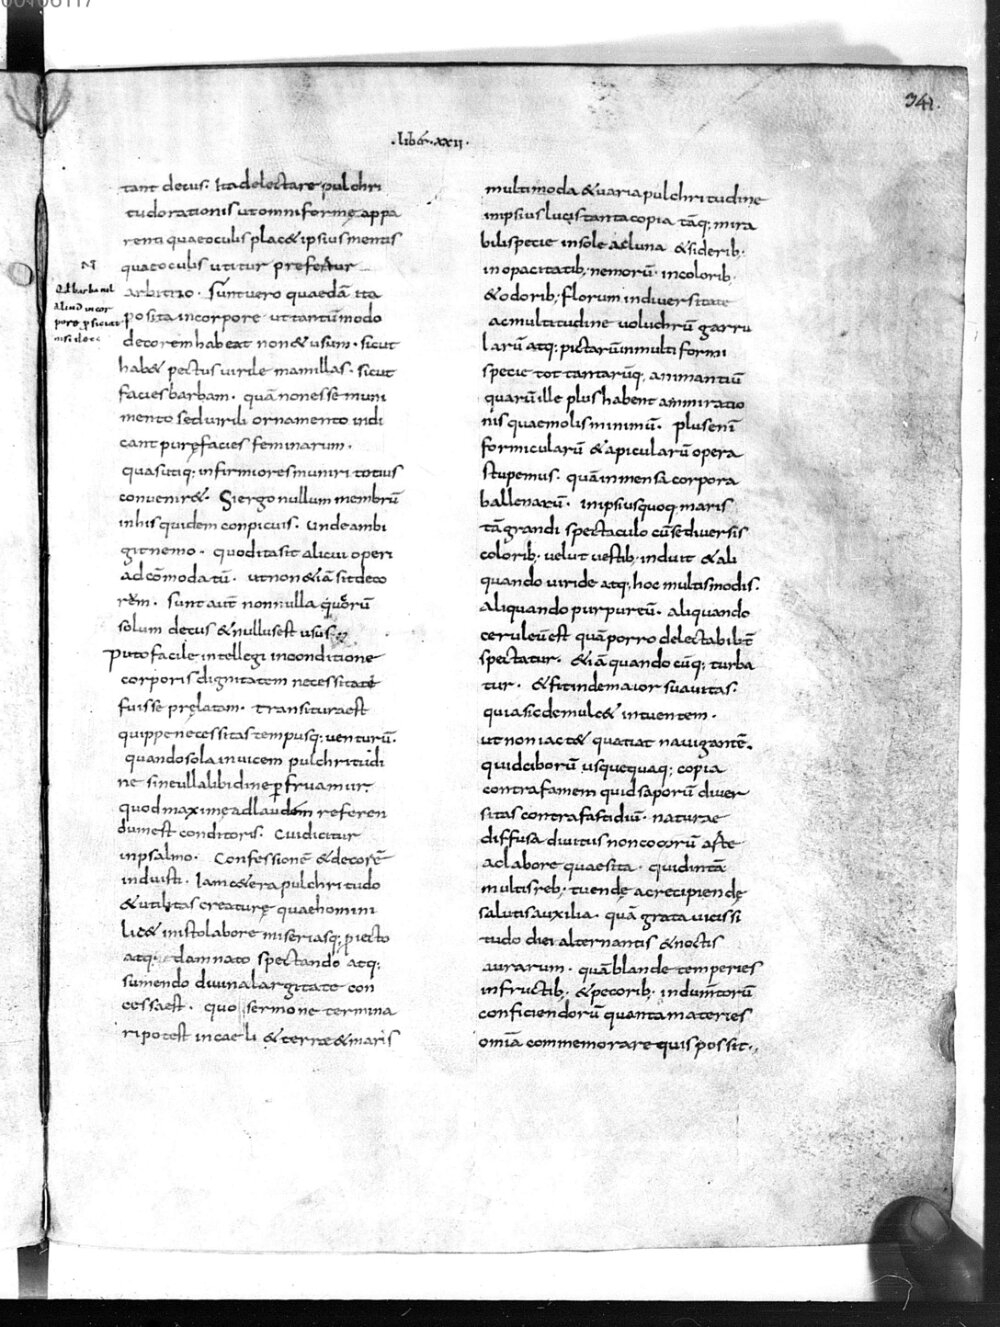 00106117
341.
.liber.xxii.
N
Q̄d barba nil
aliud in cor
nisi dec
tant decus. Ita delectare pulchri
tudo rationis ut omni formę appa
renti quae oculis plac& ipsius mentis
quae oculis utitur preferatur
arbitrio. Sunt uero quaedā ita
posita in corpore ut tantūmodo
decorem habeat non & usum. sicut
hab& pectus uirile mamillas. sicut
facies barbam. quā non esse muni
mento sed uirili ornamento indi
cant purę facies feminarum.
quas utiq; infirmiores muniri totius
conuenir&. Si ergo nullum membrū
in his quidem conpicuis. unde ambi
git nemo. quod ita sit alicui operi
adcōmodatū. ut non &iā sit deco
rēm. sunt aut̄ nonnulla quorū
solum decus & nullus est usus.
Puto facile intellegi in conditione
corporis dignitatem necessitate
fuisse pręlatam. Transitura est
quippe necessitas tempusq; uenturū.
quando sola inuicem pulchritudi
ne sine ulla libidine ꝑfruamur
quod maxime ad laudem referen
dum est conditoris. Cui dicitur
in psalmo. Confessionē & decorē
induisti. Iam c&era pulchritudo
& utilitas creaturę quae homini
lic& in isto labore miseriasq; ꝓiecto
atq; damnato spectando atq;
sumendo diuina largitate con
cessa est. quo sermone termina
ri potest in caeli & terrae & maris
multimoda & uaria pulchritudine
in ipsius lucis tanta copia tāq; mira
bili specie in sole ac luna & siderib;
in opacitatib; nemorū. in colorib;
& odorib; florum in diuersitate
ac multitudine uolucrū garru
larū atq; pictarū in multiformi
specie tot tantarūq; animantiū
quarū ille plus habent ammiratio
nis quae molis minimū. plus enī
formicularū & apicularū opera
stupemus. quā inmensa corpora
ballenarū. in ipsius quoq; maris
tā grandi spectaculo cū se diuersis
colorib; uelut uestib; induit & ali
quando uiride atq; hoc multis modis.
aliquando purpureū. aliquando
ceruleū est quā porro delectabilit̄
spectatur. &iā quandocūq; turba
tur. & fit inde maior suauitas.
quia sic demulc& intuentem.
ut non iact& quatiat nauigantē.
quid ciborū usquequaq; copia
contra famem quid saporū diuer
sitas contra fastidiū. naturae
diffusa diuitiis non cocorū arte
ac labore quaesita. quid in tā
multis reb; tuendę ac recipiendę
salutis auxilia. quā grata uicissi
tudo diei alternantis & noctis
aurarum. quā blande temperies
in fructib; & pecorib; indumtorū
conficiendorū quanta materies
omīa commemorare quis possit.